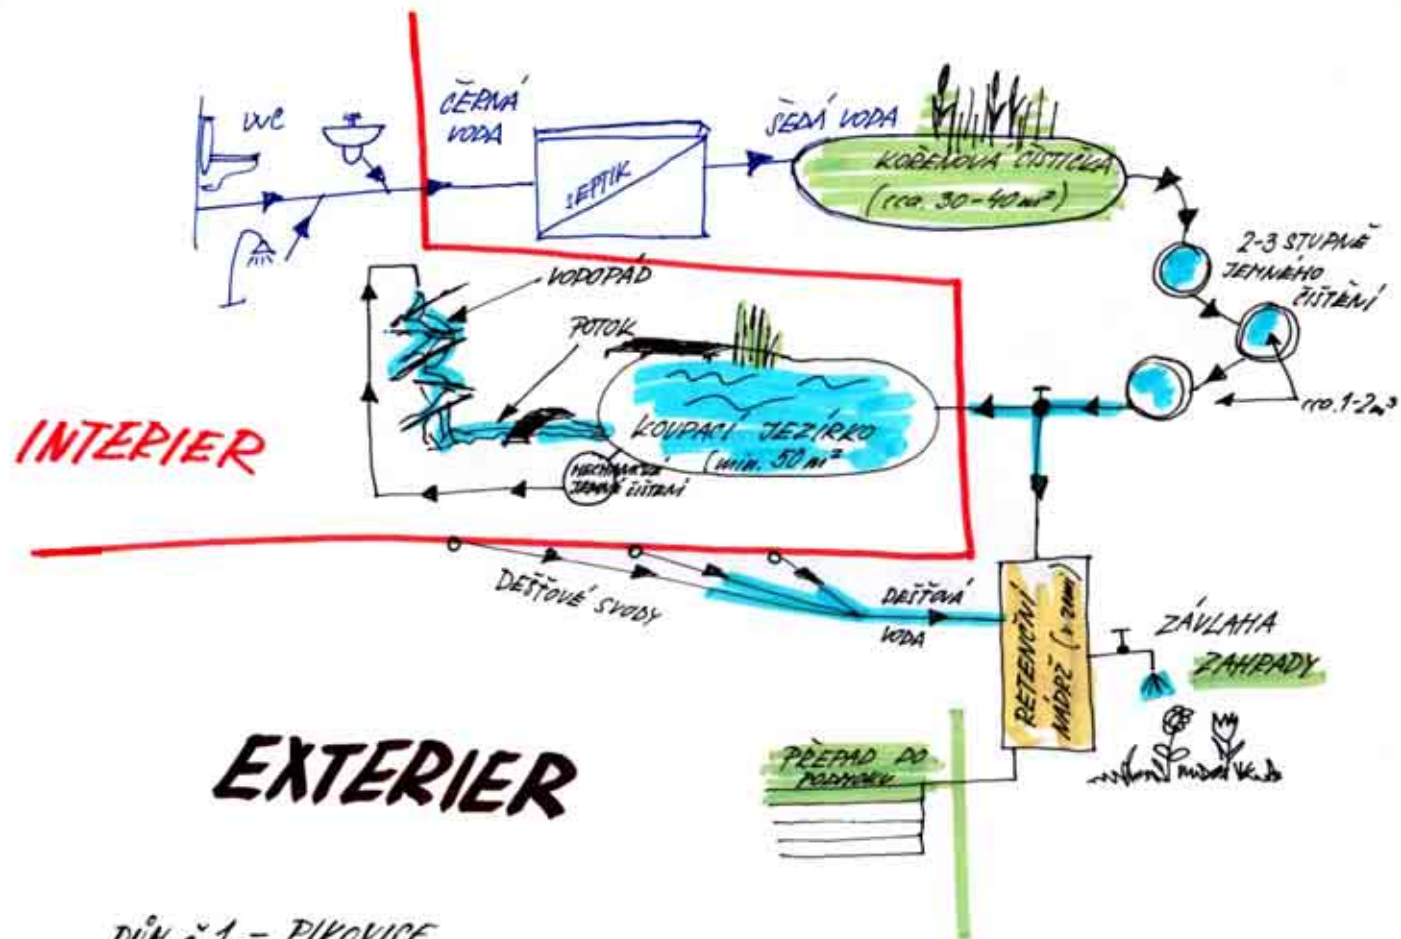 WC
ČERNÁ
VODA
SEPTIK
ŠEDÁ VODA
KOŘENOVÁ ČISTIČKA
(cca. 30-40 m²)
2-3 STUPNĚ
JEMNÉHO
ČIŠTĚNÍ
cca. 1-2 m³
VODOPÁD
POTOK
KOUPACÍ JEZÍRKO
(min. 50 m²
MECHANICKÉ
JEMNÉ ČIŠTĚNÍ
INTERIER
DEŠŤOVÉ SVODY
DEŠŤOVÁ
VODA
RETENČNÍ
NÁDRŽ (v zemi)
ZÁVLAHA
ZAHRADY
PŘEPAD DO
PODMOKU
EXTERIER
DŮM č.1 - PIKOVICE